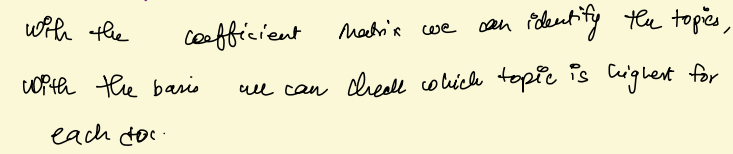 With the coefficient Matrix we can identify the topics,
With the basis we can check which topic is highest for
each doc.